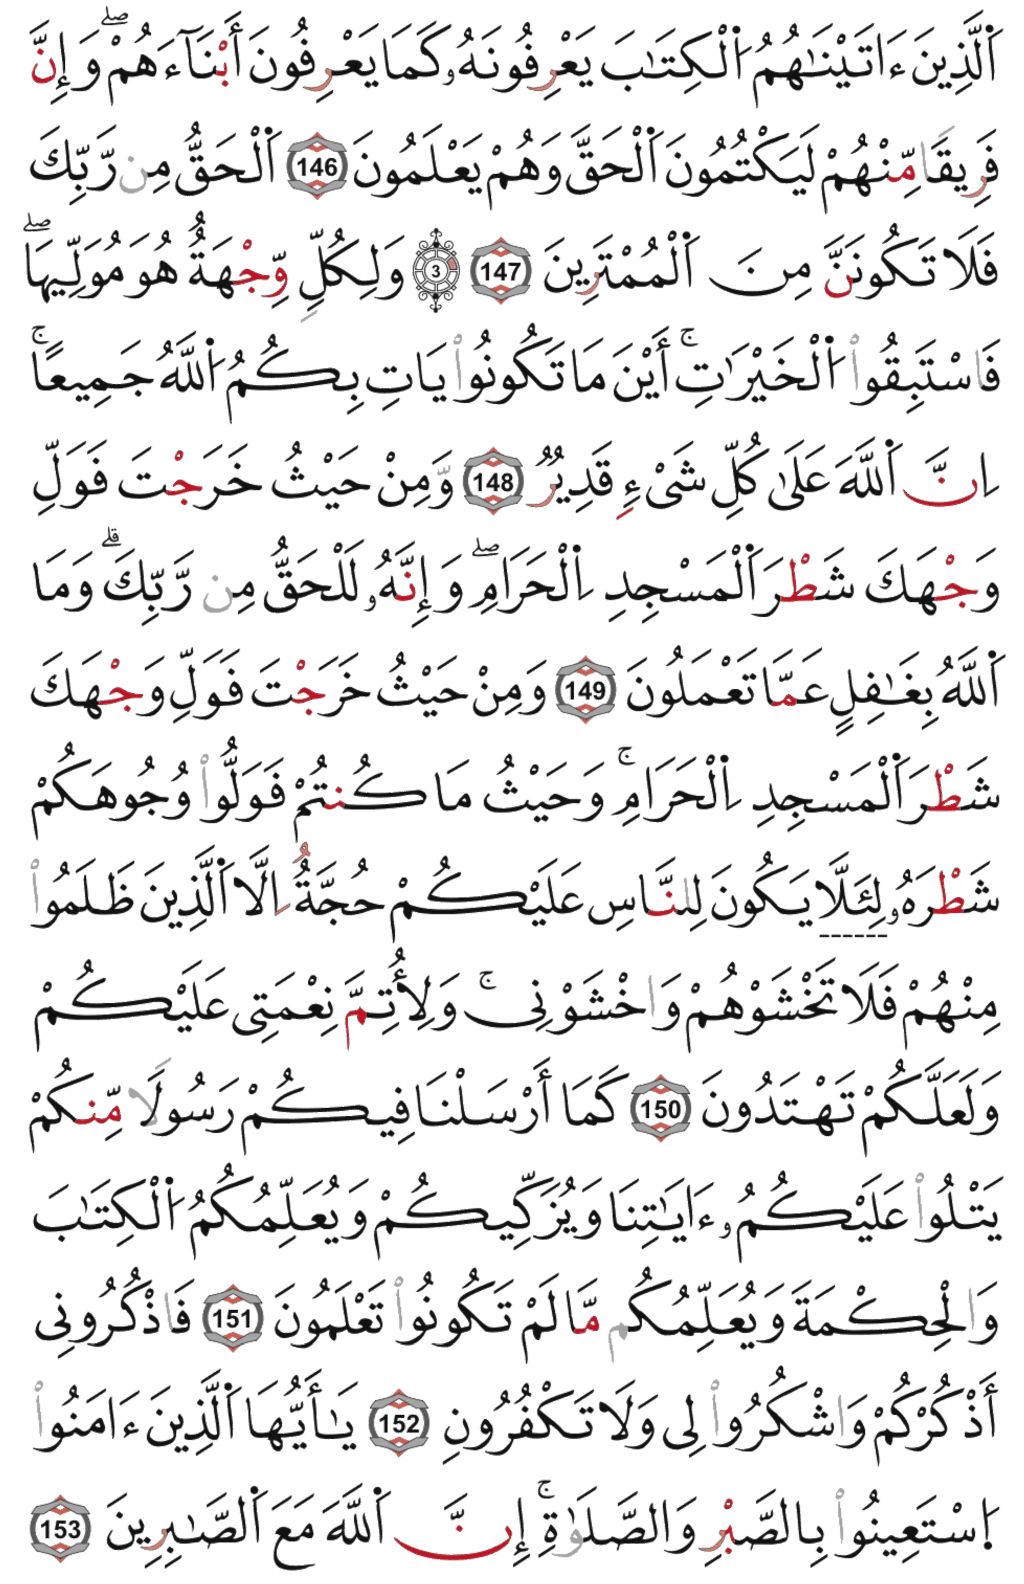 اَلَّذِينَ ءَاتَيْنَٰهُمُ اُ۬لْكِتَٰبَ يَعْرِفُونَهُۥ كَمَا يَعْرِفُونَ أَبْنَآءَهُمْۖ وَإِنَّ
فَرِيقًا مِّنْهُمْ لَيَكْتُمُونَ اَ۬لْحَقَّ وَهُمْ يَعْلَمُونَ 146 اَ۬لْحَقُّ مِن رَّبِّكَ
فَلَا تَكُونَنَّ مِنَ اَ۬لْمُمْتَرِينَ 147 3 وَلِكُلّٖ وِّجْهَةٌ هُوَ مُوَلِّيهَاۖ
فَاسْتَبِقُواْ اُ۬لْخَيْرَٰتِۚ أَيْنَ مَا تَكُونُواْ يَاتِ بِكُمُ اُ۬للَّهُ جَمِيعًاۚ
اِنَّ اَ۬للَّهَ عَلَىٰ كُلِّ شَىْءٖ قَدِيرٌ 148 وَّمِنْ حَيْثُ خَرَجْتَ فَوَلِّ
وَجْهَكَ شَطْرَ اَ۬لْمَسْجِدِ اِ۬لْحَرَامِۖ وَإِنَّهُۥ لَلْحَقُّ مِن رَّبِّكَۗ وَمَا
اَ۬للَّهُ بِغَٰفِلٍ عَمَّا تَعْمَلُونَ 149 وَمِنْ حَيْثُ خَرَجْتَ فَوَلِّ وَجْهَكَ
شَطْرَ اَ۬لْمَسْجِدِ اِ۬لْحَرَامِۚ وَحَيْثُ مَا كُنتُمْ فَوَلُّواْ وُجُوهَكُمْ
شَطْرَهُۥ لِئَلَّا يَكُونَ لِلنَّاسِ عَلَيْكُمْ حُجَّةٌ اِلَّا اَ۬لَّذِينَ ظَلَمُواْ
مِنْهُمْ فَلَا تَخْشَوْهُمْ وَاخْشَوْنِىۚ وَلِأُتِمَّ نِعْمَتِى عَلَيْكُمْ
وَلَعَلَّكُمْ تَهْتَدُونَ 150 كَمَا أَرْسَلْنَا فِيكُمْ رَسُولًا مِّنكُمْ
يَتْلُواْ عَلَيْكُمُۥ ءَايَٰتِنَا وَيُزَكِّيكُمْ وَيُعَلِّمُكُمُ اُ۬لْكِتَٰبَ
وَالْحِكْمَةَ وَيُعَلِّمُكُم مَّا لَمْ تَكُونُواْ تَعْلَمُونَ 151 فَاذْكُرُونِى
أَذْكُرْكُمْ وَاشْكُرُواْ لِى وَلَا تَكْفُرُونِ 152 يَٰأَيُّهَا اَ۬لَّذِينَ ءَامَنُواْ
اِ۪سْتَعِينُواْ بِالصَّبْرِ وَالصَّلَوٰةِۚ إِنَّ اَ۬للَّهَ مَعَ اَ۬لصَّٰبِرِينَ 153